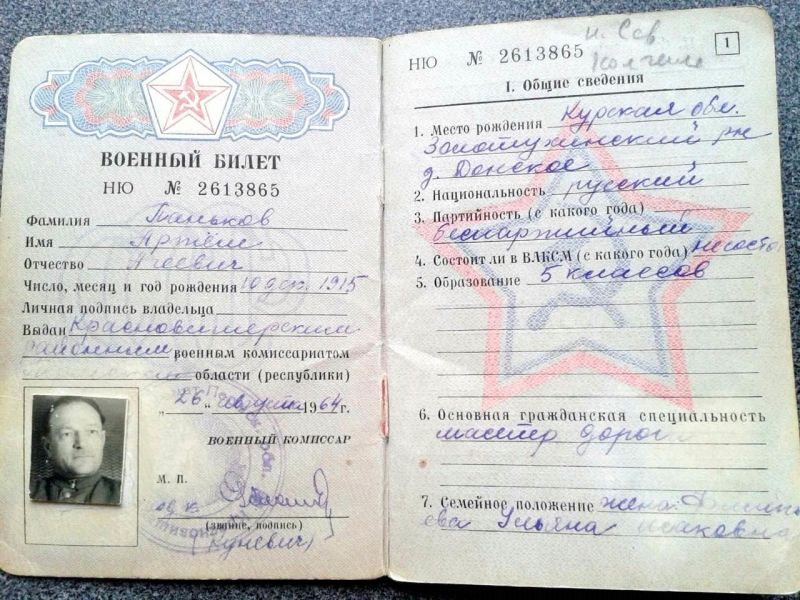 ВОЕННЫЙ БИЛЕТ
НЮ № 2613865
Фамилия Паньков
Имя Артём
Отчество
Число, месяц и год рождения 10 дек. 1915
Личная подпись владельца
Выдан Красновишерским
районным военным комиссариатом
области (республики)
„26“ августа 1964 г.
ВОЕННЫЙ КОМИССАР
М. П.
(звание, подпись)
(Куневич)
НЮ № 2613865
1
I. Общие сведения
1. Место рождения Курская обл.
Золотухинский рн
д. Донское
2. Национальность русский
3. Партийность (с какого года)
беспартийный
4. Состоит ли в ВЛКСМ (с какого года) не состо
5. Образование 5 классов
6. Основная гражданская специальность
мастер дорог
7. Семейное положение жена
Ульяна Исаковна